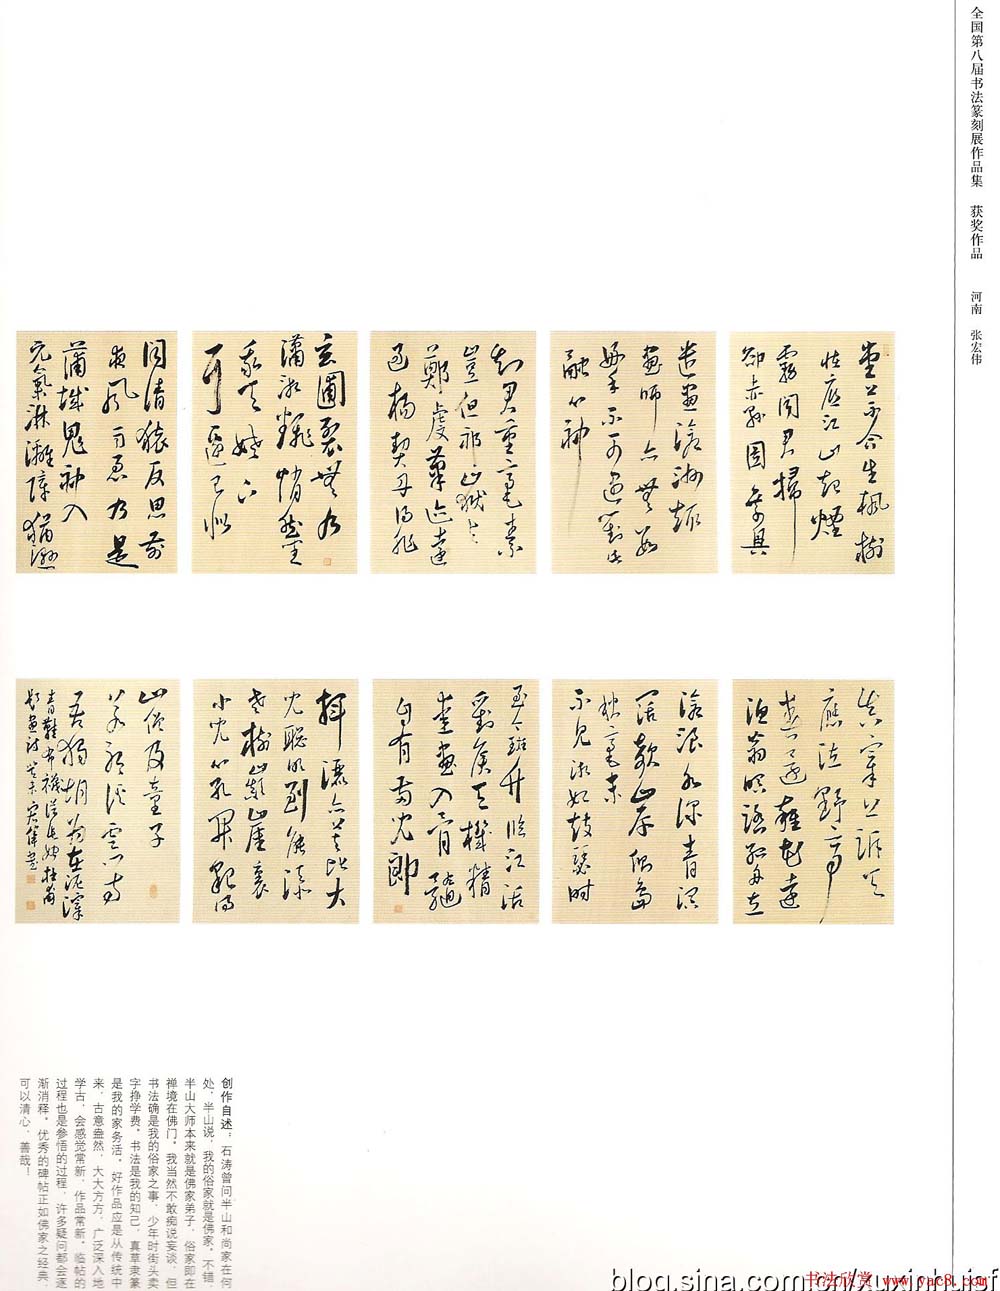 全国第八届书法篆刻展作品集 获奖作品 河南 张宏伟
堂上不合生楓樹
怪底江山起煙
霧聞君掃
卻赤縣圖乘興
遣畫滄洲趣
畫師亦無數
好手不可遇對此
融心神
知君重毫素
豈但祁岳與
鄭虔筆迹遠
過楊契丹得非
玄圃裂無乃
瀟湘翻悄然坐
我天姥下
耳邊已似
聞清猿反思前
夜風雨急乃是
蒲城鬼神入
元氣淋漓障猶濕
真宰上訴天
應泣野亭
春還雜花遠
漁翁暝踏孤舟立
滄浪水深青溟
闊欹岸側島
秋毫末
不見湘妃鼓瑟時
至今斑竹臨江活
劉侯天機精
愛畫入骨髓
自有兩兒郎
揮灑亦莫比大
兒聰明到能添
老樹巔崖裏
小兒心孔開貌得
山僧及童子
若耶溪雲門寺
吾獨胡為在泥滓
青鞋布襪從此始杜甫
題畫詩癸未宏偉書
创作自述：石涛曾问半山和尚家在何
处，半山说，我的俗家就是佛家。不错，
半山大师本来就是佛家弟子，俗家即在
禅境在佛门。我当然不敢痴说妄谈，但
书法确是我的俗家之事，少年时街头卖
字挣学费。书法是我的知己，真草隶篆
是我的家务活。好作品应是从传统中
来，古意盎然，大大方方，广泛深入地
学古，会感觉常新，作品常新。临帖的
过程也是参悟的过程，许多疑问都会逐
渐消释。优秀的碑帖正如佛家之经典，
可以清心，善哉！
blog.sina.com.cn/xuxinhuisf
书法欣赏 www.yac8.com